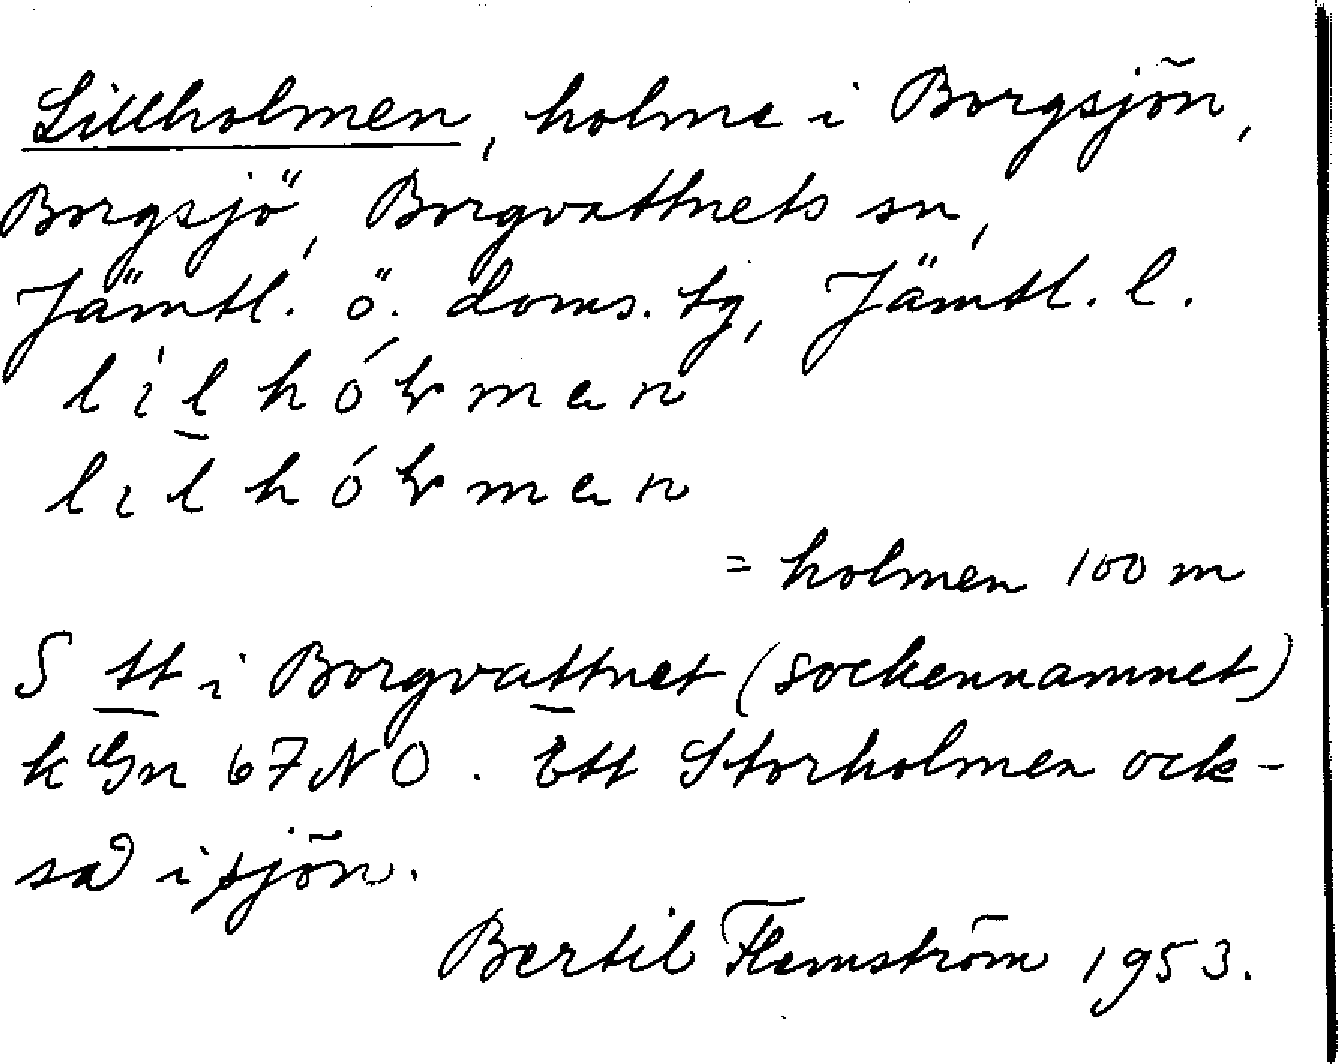 Lillholmen, holme i Borgsjön,
Borgsjö, Borgvattnets sn,
Jämtl. ö. doms. tg, Jämtl. l.
lilhóɽman
lilhóɽman
= holmen 100 m
S tt i Borgvattnet (sockennamnet)
k Gn 67 NO. Ett Storholmen ock-
så i sjön.
Bertil Flemström 1953.